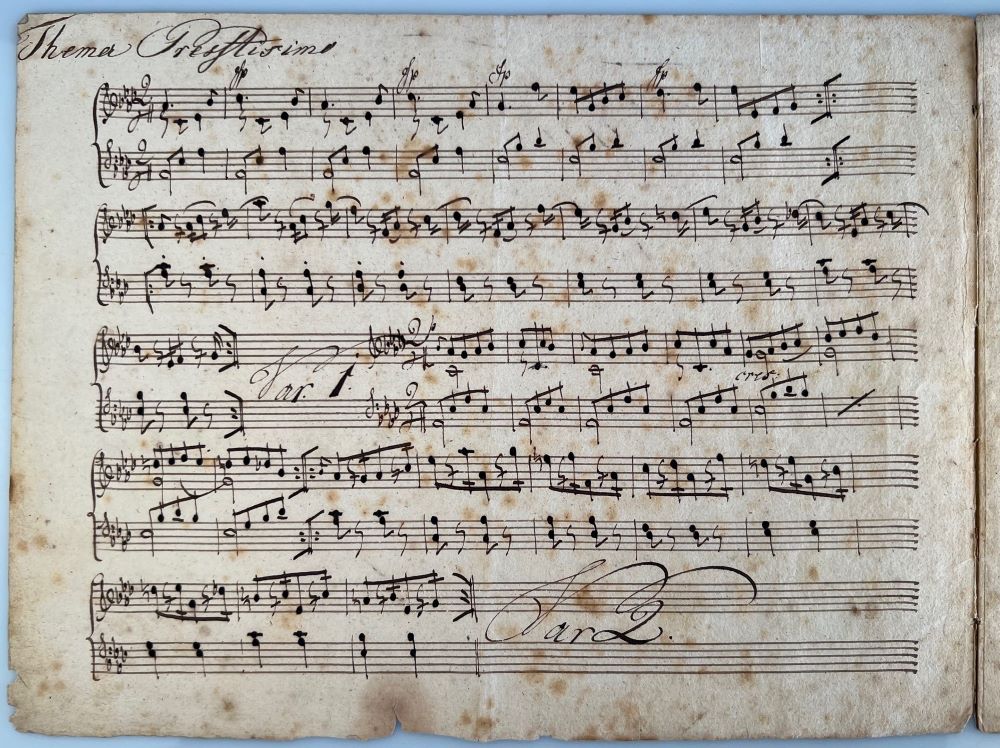 Thema Presttisimo
fp fp fp fp
Var. 1.
cres.
Var 2.